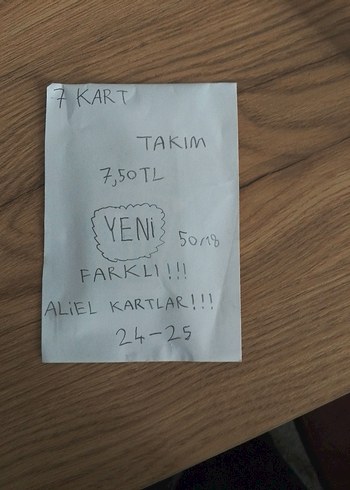 7 KART
TAKIM
7,50TL
YENİ
FARKLI!!!
ALİEL KARTLAR!!!
24-25